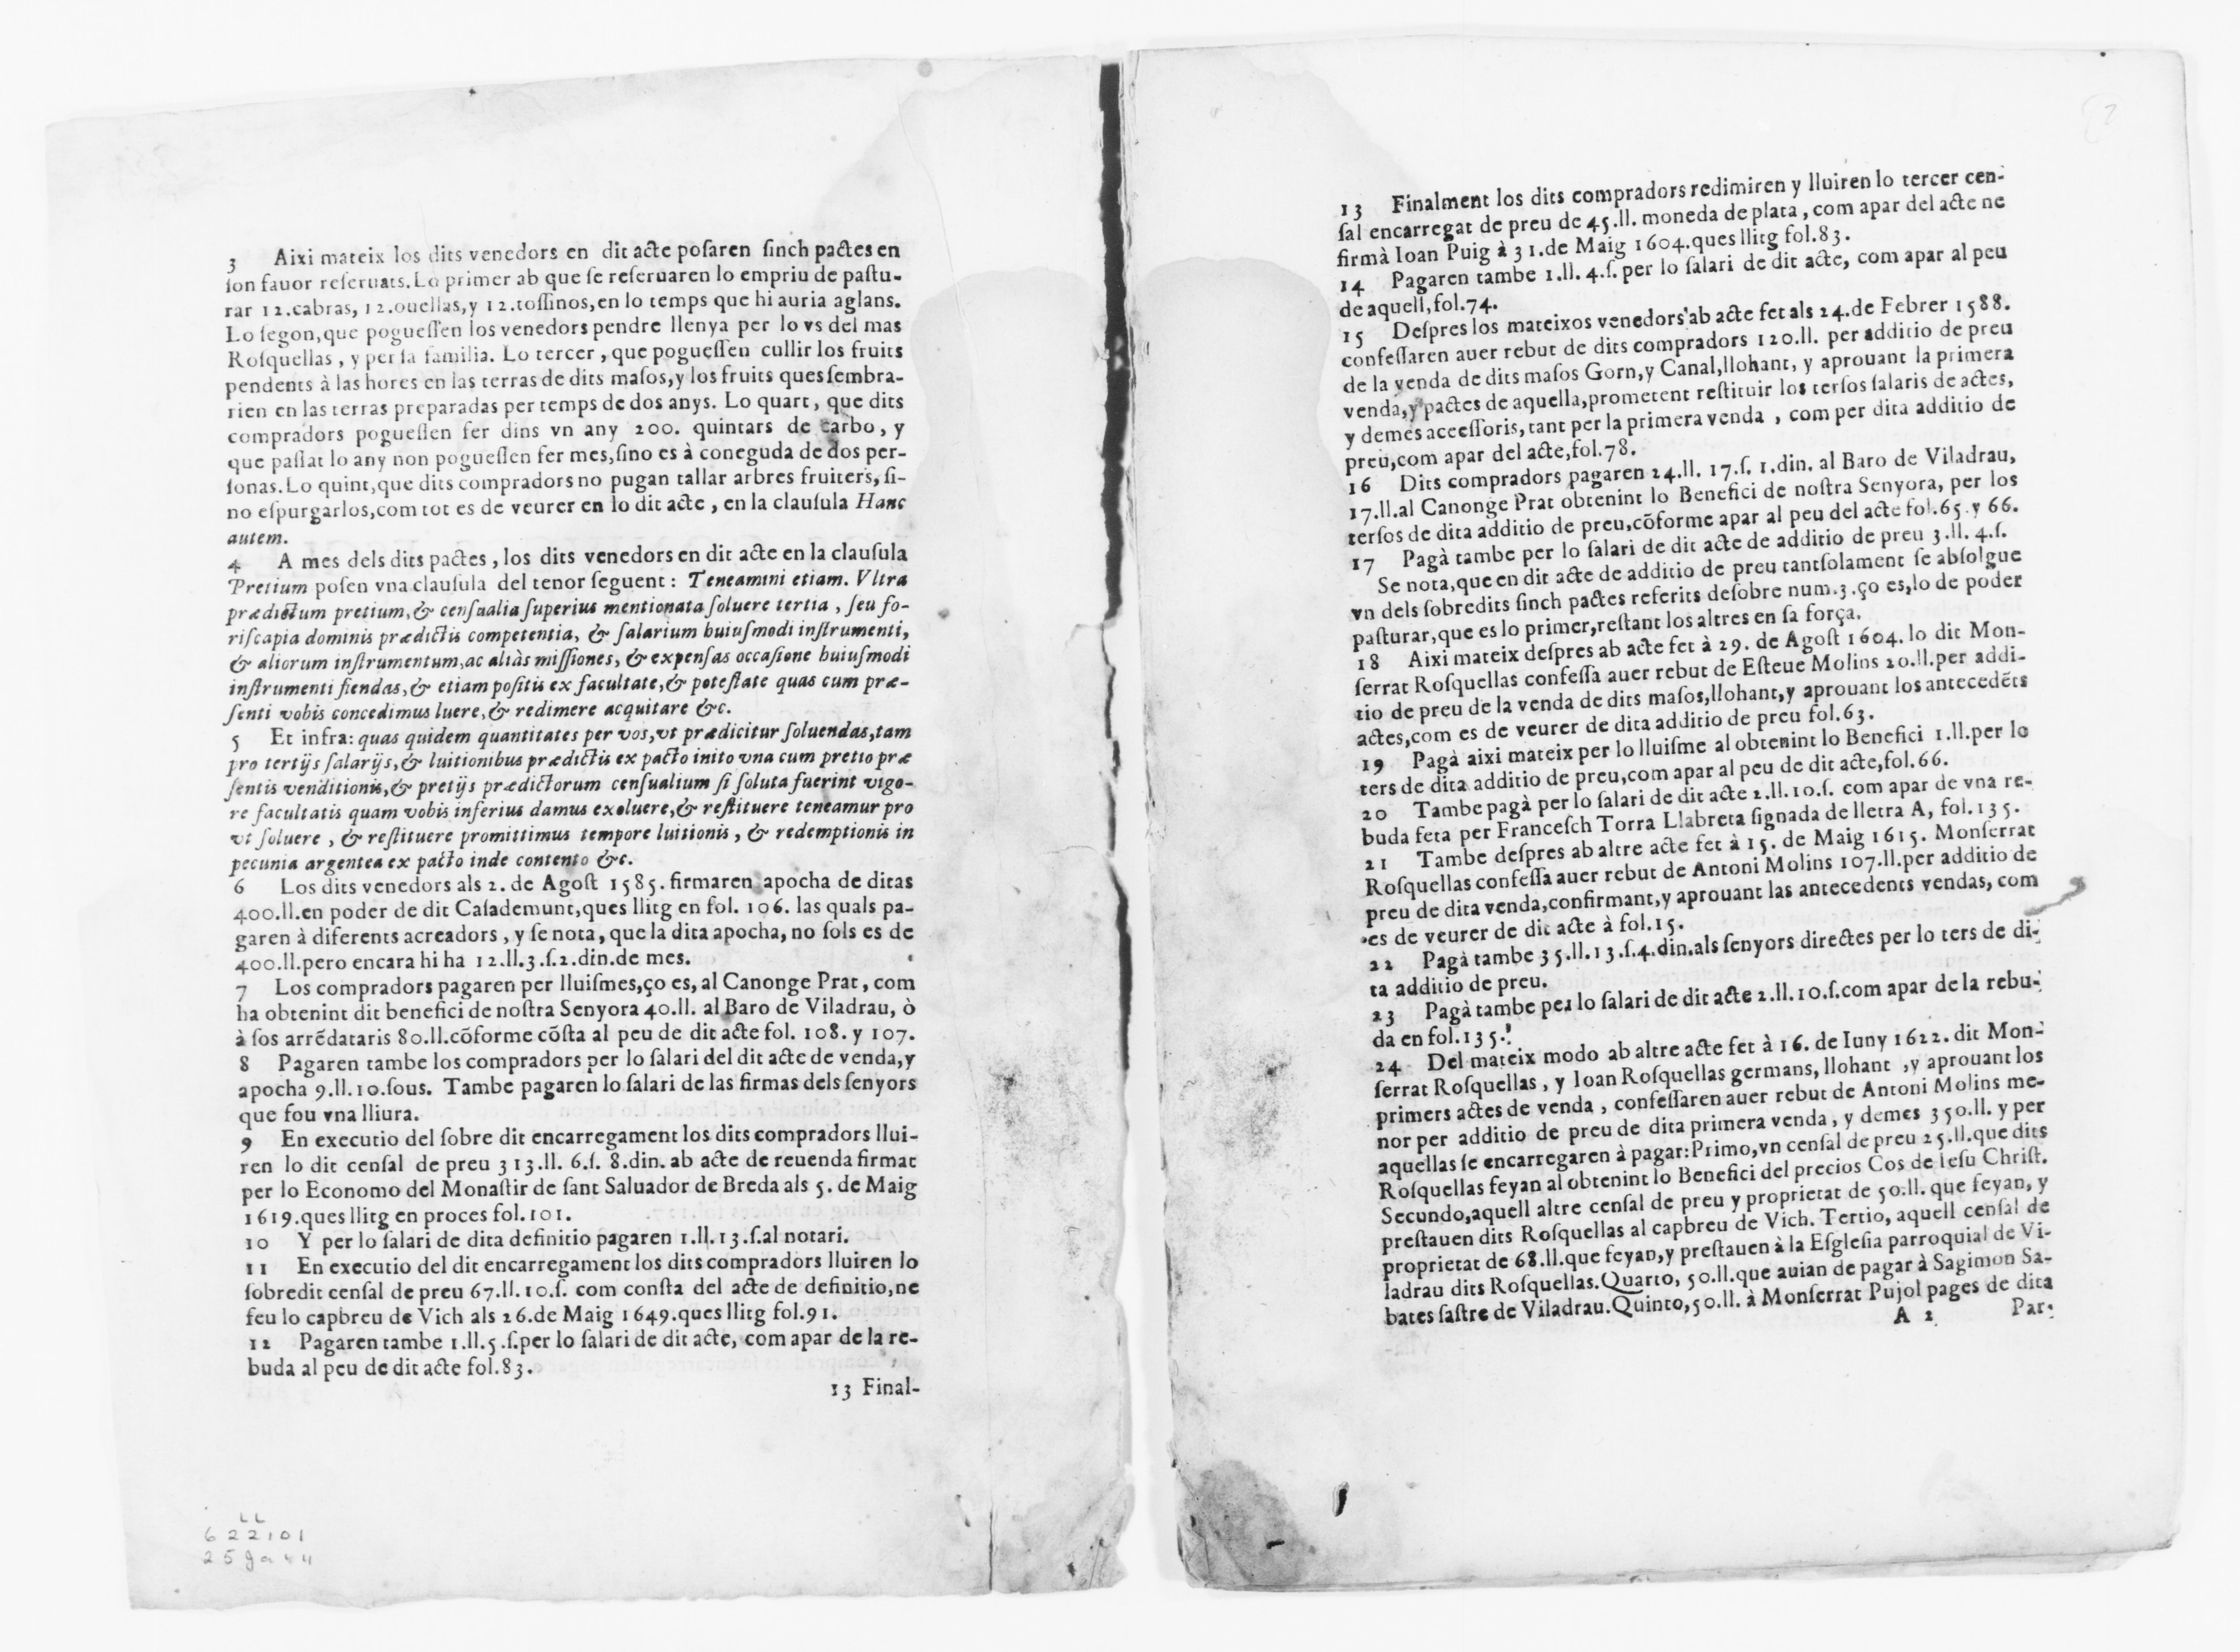 3 Aixi mateix los dits venedors en dit acte posaren sinch pactes en
son fauor reseruats. Lo primer ab que se reseruaren lo empriu de pastu-
rar 12.cabras, 12.ouellas,y 12.tossinos,en lo temps que hi auria aglans.
Lo segon,que poguessen los venedors pendre llenya per lo vs del mas
Rosquellas , y per sa familia. Lo tercer , que poguessen cullir los fruits
pendents à las hores en las terras de dits masos,y los fruits ques sembra-
rien en las terras preparadas per temps de dos anys. Lo quart, que dits
compradors poguessen fer dins vn any 200. quintars de carbo, y
que passat lo any non poguessen fer mes,sino es à coneguda de dos per-
sonas.Lo quint,que dits compradors no pugan tallar arbres fruiters, si-
no espurgarlos,com tot es de veurer en lo dit acte , en la clausula Hanc
autem.
4 A mes dels dits pactes , los dits venedors en dit acte en la clausula
Pretium posen vna clausula del tenor seguent : Teneamini etiam. Vltra
prædictum pretium,& censualia superius mentionata soluere tertia , seu fo-
riscapia dominis prædictis competentia, & salarium huiusmodi instrumenti,
& aliorum instrumentum,ac aliàs missiones, & expensas occasione huiusmodi
instrumenti fiendas,& etiam positis ex facultate,& potestate quas cum præ-
senti vobis concedimus luere,& redimere acquitare &c.
5 Et infra: quas quidem quantitates per vos,vt prædicitur soluendas,tam
pro tertijs salarijs,& luitionibus prædictis ex pacto inito vna cum pretio præ
sentis venditionis,& pretijs prædictorum censualium si soluta fuerint vigo-
re facultatis quam vobis inferius damus exoluere,& restituere teneamur pro
vt soluere , & restituere promittimus tempore luitionis , & redemptionis in
pecunia argentea ex pacto inde contento &c.
6 Los dits venedors als 2. de Agost 1585. firmaren apocha de ditas
400.ll.en poder de dit Casademunt,ques llitg en fol. 106. las quals pa-
garen à diferents acreadors , y se nota, que la dita apocha, no sols es de
400.ll.pero encara hi ha 12.ll.3.s.2.din.de mes.
7 Los compradors pagaren per lluismes,ço es, al Canonge Prat, com
ha obtenint dit benefici de nostra Senyora 40.ll. al Baro de Viladrau, ò
à sos arrẽdataris 80.ll.cõforme cõsta al peu de dit acte fol. 108. y 107.
8 Pagaren tambe los compradors per lo salari del dit acte de venda,y
apocha 9.ll.10.sous. Tambe pagaren lo salari de las firmas dels senyors
que fou vna lliura.
9 En executio del sobre dit encarregament los dits compradors llui-
ren lo dit censal de preu 313.ll. 6.s. 8.din. ab acte de reuenda firmat
per lo Economo del Monastir de sant Saluador de Breda als 5. de Maig
1619.ques llitg en proces fol.101.
10 Y per lo salari de dita definitio pagaren 1.ll.13.s.al notari.
11 En executio del dit encarregament los dits compradors lluiren lo
sobredit censal de preu 67.ll.10.s. com consta del acte de definitio,ne
feu lo capbreu de Vich als 26.de Maig 1649.ques llitg fol.91.
12 Pagaren tambe 1.ll.5.s.per lo salari de dit acte, com apar de la re-
buda al peu de dit acte fol.83.
13 Final-
LL
622101
25 ga 44
13 Finalment los dits compradors redimiren y lluiren lo tercer cen-
sal encarregat de preu de 45.ll. moneda de plata , com apar del acte ne
firmà Ioan Puig à 31.de Maig 1604.ques llitg fol.83.
14 Pagaren tambe 1.ll. 4.s. per lo salari de dit acte, com apar al peu
de aquell,fol.74.
15 Despres los mateixos venedors ab acte fet als 24.de Febrer 1588.
confessaren auer rebut de dits compradors 120.ll. per additio de preu
de la venda de dits masos Gorn,y Canal,llohant, y aprouant la primera
venda,y pactes de aquella,prometent restituir los tersos salaris de actes,
y demes accessoris, tant per la primera venda , com per dita additio de
preu,com apar del acte,fol.78.
16 Dits compradors pagaren 24.ll. 17.s. 1.din. al Baro de Viladrau,
17.ll.al Canonge Prat obtenint lo Benefici de nostra Senyora, per los
tersos de dita additio de preu,cõforme apar al peu del acte fol.65.y 66.
17 Pagà tambe per lo salari de dit acte de additio de preu 3.ll. 4.s.
Se nota,que en dit acte de additio de preu tantsolament se absolgue
vn dels sobredits sinch pactes referits desobre num.3.ço es,lo de poder
pasturar,que es lo primer,restant los altres en sa força.
18 Aixi mateix despres ab acte fet à 29. de Agost 1604. lo dit Mon-
serrat Rosquellas confessà auer rebut de Esteue Molins 20.ll.per addi-
tio de preu de la venda de dits masos,llohant,y aprouant los antecedẽts
actes,com es de veurer de dita additio de preu fol.63.
19 Pagà aixi mateix per lo lluisme al obtenint lo Benefici 1.ll.per lo
ters de dita additio de preu,com apar al peu de dit acte,fol.66.
20 Tambe pagà per lo salari de dit acte 2.ll.10.s. com apar de vna re-
buda feta per Francesch Torra Llabreta signada de lletra A, fol.135.
21 Tambe despres ab altre acte fet à 15. de Maig 1615. Monserrat
Rosquellas confessa auer rebut de Antoni Molins 107.ll.per additio de
preu de dita venda,confirmant,y aprouant las antecedents vendas, com
es de veurer de dit acte à fol.15.
22 Pagà tambe 35.ll.13.s.4.din.als senyors directes per lo ters de di-
ta additio de preu.
23 Pagà tambe per lo salari de dit acte 2.ll.10.s.com apar de la rebu-
da en fol.135.
24 Del mateix modo ab altre acte fet à 16. de Iuny 1622. dit Mon-
serrat Rosquellas , y Ioan Rosquellas germans, llohant ,y aprouant los
primers actes de venda , confessaren auer rebut de Antoni Molins me-
nor per additio de preu de dita primera venda , y demes 350.ll. y per
aquellas se encarregaren à pagar:Primo,vn censal de preu 25.ll.que dits
Rosquellas feyan al obtenint lo Benefici del precios Cos de Iesu Christ.
Secundo,aquell altre censal de preu y proprietat de 50.ll. que feyan, y
prestauen dits Rosquellas al capbreu de Vich. Tertio, aquell censal de
proprietat de 68.ll.que feyan,y prestauen à la Esglesia parroquial de Vi-
ladrau dits Rosquellas.Quarto, 50.ll.que auian de pagar à Sagimon Sa-
bates sastre de Viladrau.Quinto,50.ll. à Monserrat Pujol pages de dita
A 2 Par-